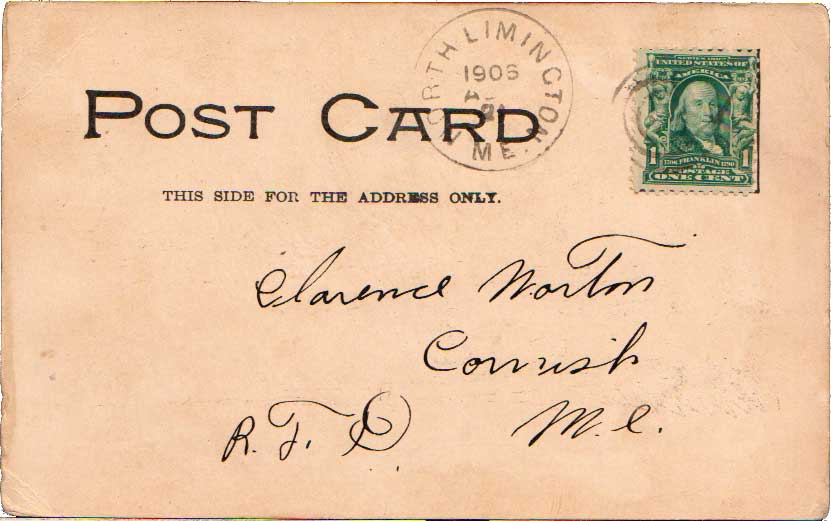 NORTH LIMINGTON
1906
ME.
SERIES 1902
UNITED STATES OF
AMERICA
1 1706 FRANKLIN 1790 1
POSTAGE
ONE CENT
POST CARD
THIS SIDE FOR THE ADDRESS ONLY.
Clarence Norton
Cornish
R. F. D. M.E.